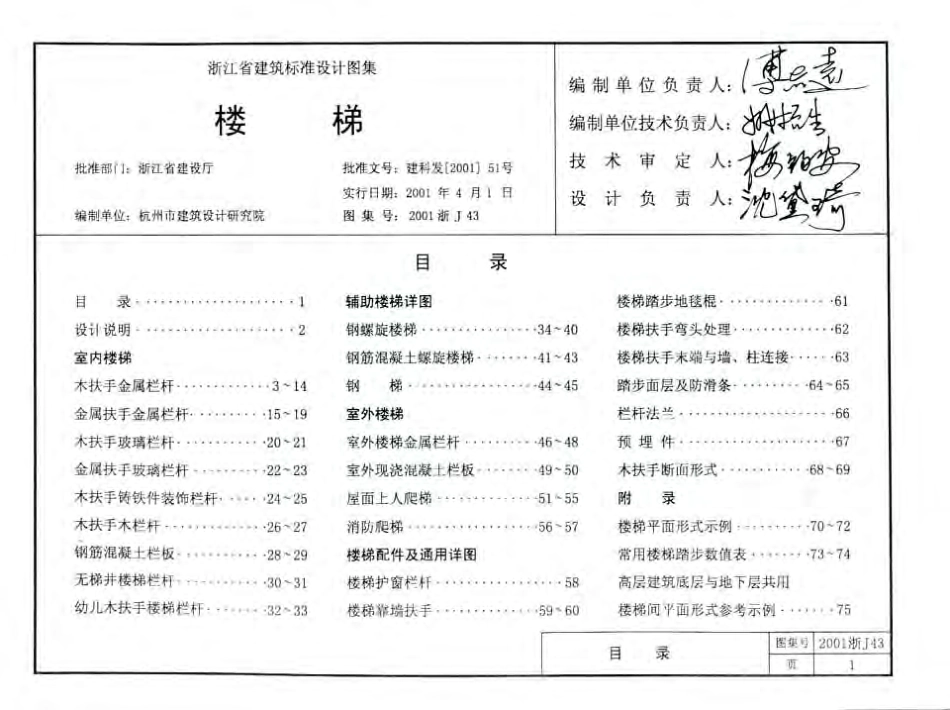 浙江省建筑标准设计图集
楼 梯
批准部门: 浙江省建设厅
批准文号: 建科发[2001] 51号
实行日期: 2001 年 4 月 1 日
编制单位: 杭州市建筑设计研究院
图 集 号: 2001浙J43
编制单位负责人:
编制单位技术负责人:
技 术 审 定 人:
设 计 负 责 人:
目 录
目 录 1
设计说明 2
室内楼梯
木扶手金属栏杆 3~14
金属扶手金属栏杆 15~19
木扶手玻璃栏杆 20~21
金属扶手玻璃栏杆 22~23
木扶手铸铁件装饰栏杆 24~25
木扶手木栏杆 26~27
钢筋混凝土栏板 28~29
无梯井楼梯栏杆 30~31
幼儿木扶手楼梯栏杆 32~33
辅助楼梯详图
钢螺旋楼梯 34~40
钢筋混凝土螺旋楼梯 41~43
钢 梯 44~45
室外楼梯
室外楼梯金属栏杆 46~48
室外现浇混凝土栏板 49~50
屋面上人爬梯 51~55
消防爬梯 56~57
楼梯配件及通用详图
楼梯护窗栏杆 58
楼梯靠墙扶手 59~60
楼梯踏步地毯棍 61
楼梯扶手弯头处理 62
楼梯扶手末端与墙、柱连接 63
踏步面层及防滑条 64~65
栏杆法兰 66
预 埋 件 67
木扶手断面形式 68~69
附 录
楼梯平面形式示例 70~72
常用楼梯踏步数值表 73~74
高层建筑底层与地下层共用
楼梯间平面形式参考示例 75
目 录
图集号 2001浙J43
页 1